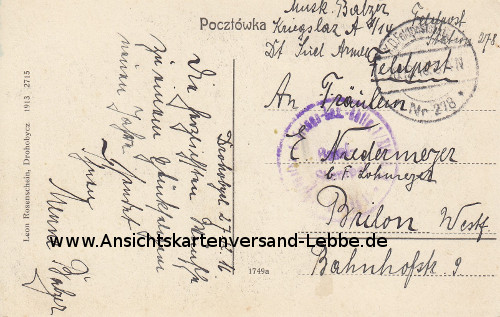 Pocztówka
Musk. Balzer
Kriegslaz. A 8/14
Dt. Süd Armee
Feldpost
Station 278
Feldpost
An Fräulein
E. Niedermeyer
b. F. Lohmeyer
Brilon Westf.
Bahnhofstr. 9
Nr 278
Drohobycz 27.
Die herzlichsten Wünsche
zu einem glückseligen
neuen Jahre sendet
Ihnen
Balzer
Leon Rosenschein, Drohobycz 1913 2715
1749a
www.Ansichtskartenversand-Lebbe.de